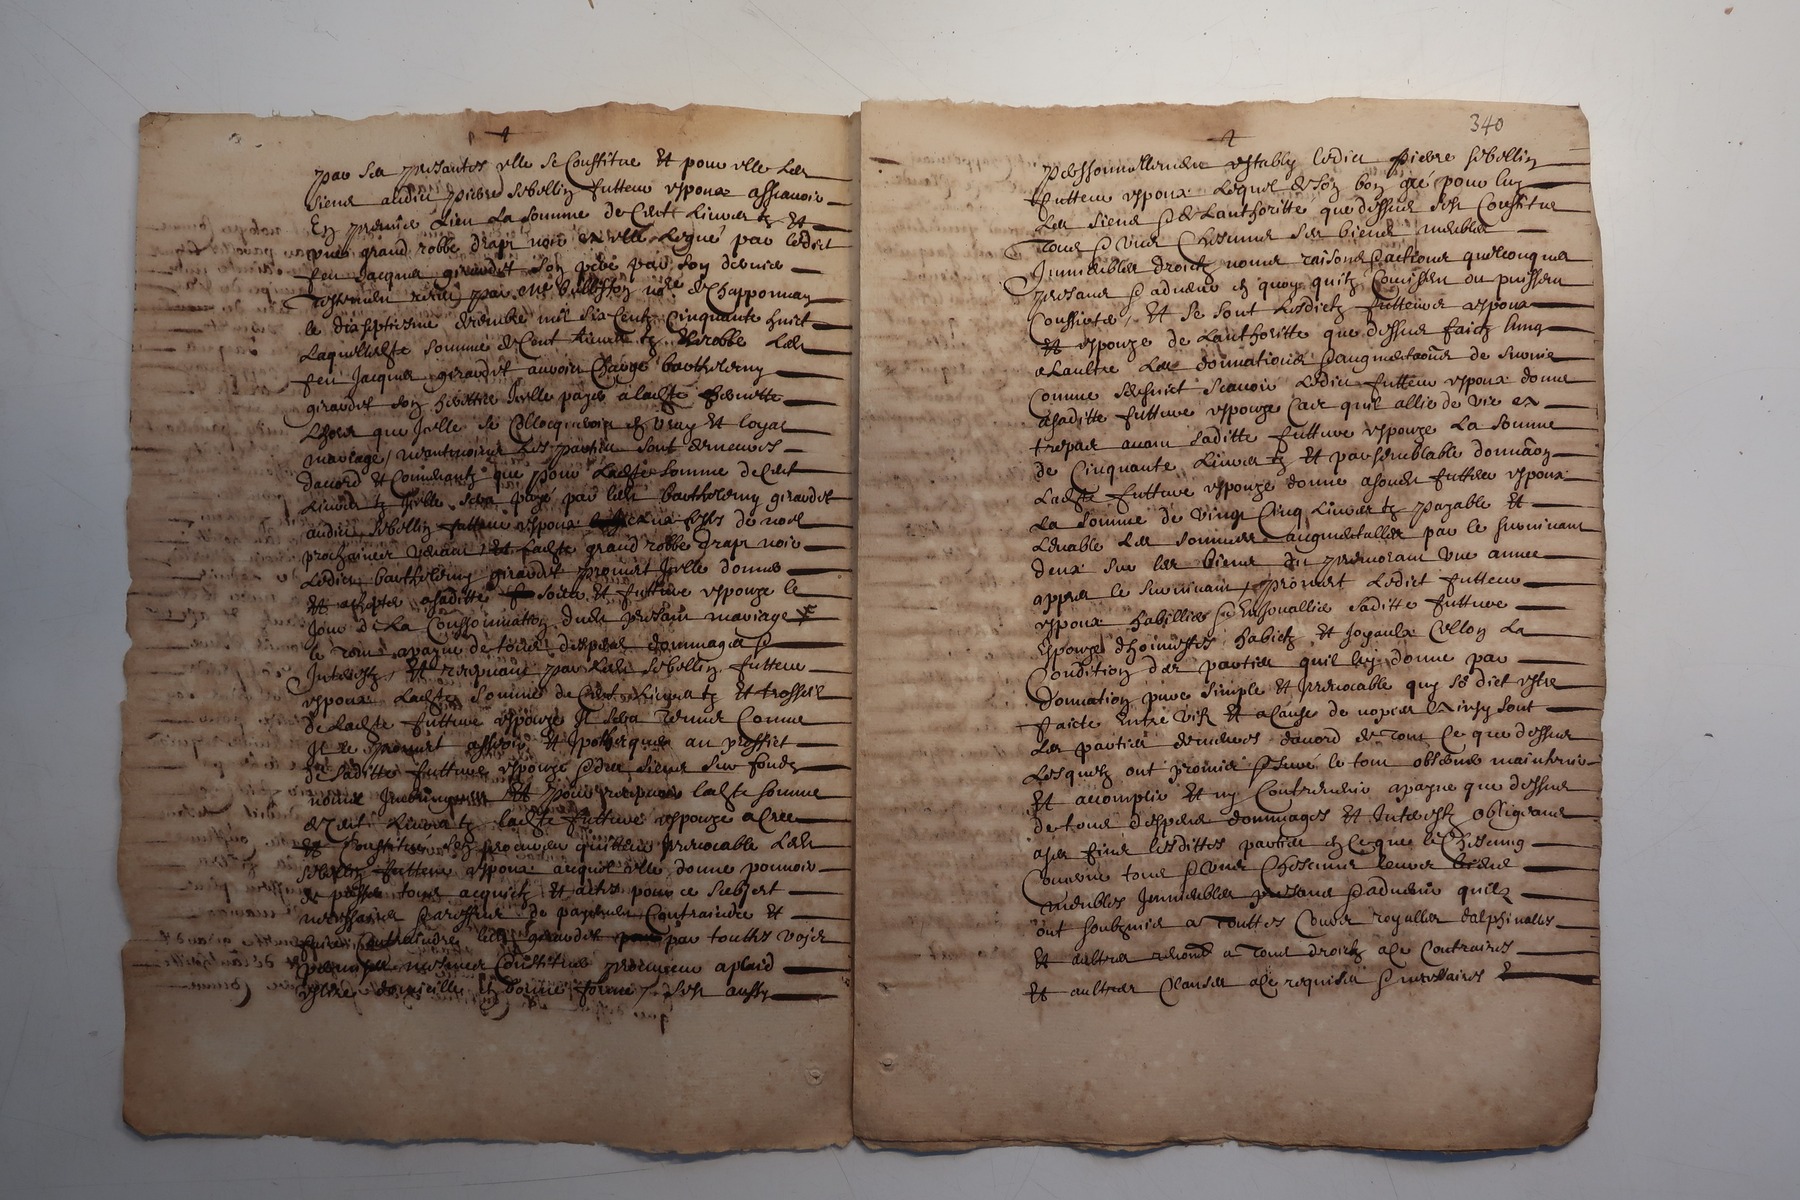 par ses presantes elle se Constitue Et pour elle Les
siens audict pierre sebellin futteur espoux assavoir
En premier Lieu La somme de Cent Livres tz Et
une grand robbe drapt noir a elle Legué par ledict
feu Jacques girardet son pere par son dernier
testemien receu par me not.re de Chapponnay
le dixseptiesme decembre mil six Centz Cinquante huict
Laquelle ladte somme de Cent Livres tz Et robbe Led
feu Jacques girardet auroit Charge barthelemy
girardet son herittier Icelle payer a ladte
Lhors que Icelle se Collocqueroit En vray Et loyal
mariage, neantmoings Les parties sont demeures
dacord Et Conviennent que pour Ladte somme de Cent
Livres tz Icelle sera payé par ledt barthelemy girardet
audict sebellin futteur espoux aux festes de noel
prochaines venant, Et ladte grand robbe drapt noir
Ledict barthelemy girardet promet Icelle donner
Et achepter a saditte soeur Et futture espouze le
Jour de La Consommation dudt presant mariage
le tout a payne de tous despens dommages &
Interestz, Et recepvant par Ledt sebellin futteur
espoux Ladte somme de Cent Livres tz Et trosseil
de Ladte futture espouze Il sera tenus Comme
Il le promet assoir Et Ipothequer au proffict
de saditte futture espouze & des siens sur fondz
Et pour recepvoir ladte somme
de Cent Livres tz ladte futture espouze a Cree
Et Constitue son procureur Irrevocable Ledt
sebellin futteur espoux auquel elle donne pouvoir
de passer tous acquictz Et actes pour ce subject
necessaires & a reffus de payement Contraindre Et
faire Contraindre ledt girardet par touttes voyes
mesmes Constituer procureur a plaid
eslire domicille En bonne forme / Et aussy
340
personnellement estably ledict pierre sebellin
futteur espoux Lequel de son bon gré pour luy
Les siens & de Lauthoritte que dessus sest Constitue
Tous & uns Chescuns ses biens meubles
Immeubles droictz noms raisons & actions quelconques
presans & advenir En quoy quilz Concistent ou puissent
Concister, Et se sont Lesdictz futteurs espoux
Et espouze de Lauthoritte que dessus faictz Lung
a Laultre Les donnations & augmentaons de survie
Comme sensuict scavoir Ledict futteur espoux donne
a saditte futture espouze Cas quil allie de vie a
trepas avant saditte futture espouze La somme
de Cinquante Livres tz Et par semblable donnaon
Ladte futture espouze donne a sondt futteur espoux
La somme de vingt Cinq Livres tz payable Et
Levable Les sommes augmentalles par le survivant
deux sur les biens du premorant une annee
appres le survivant, promet Ledict futteur
espoux habillier & Enjouallier saditte futture
Espouze dhonnestes habictz Et Joyaulx sellon La
Condition des parties quil luy donne par
Donnation pure simple Et Irrevocable quy se dict estre
faicte Entre vifz Et a Cause de nopces Ainsy sont
Les parties demeures dacord de tout Ce que dessus
Lesquelz ont promis & Juré le tout observer maintenir
Et accomplir Et ny Contrevenir a payne que dessus
de tous despens dommages Et Interestz obligeans
a ses fins lesdittes parties En Ce que a Chescung
Concerne tous & uns Chescuns leurs biens
meubles Immeubles presans & advenir quilz
ont soubzmis a touttes Cours royalles dalphinalles
Et aultres renonce a tous droictz a Ce Contraires
Et aultres Clauses a Ce requises & necessaires